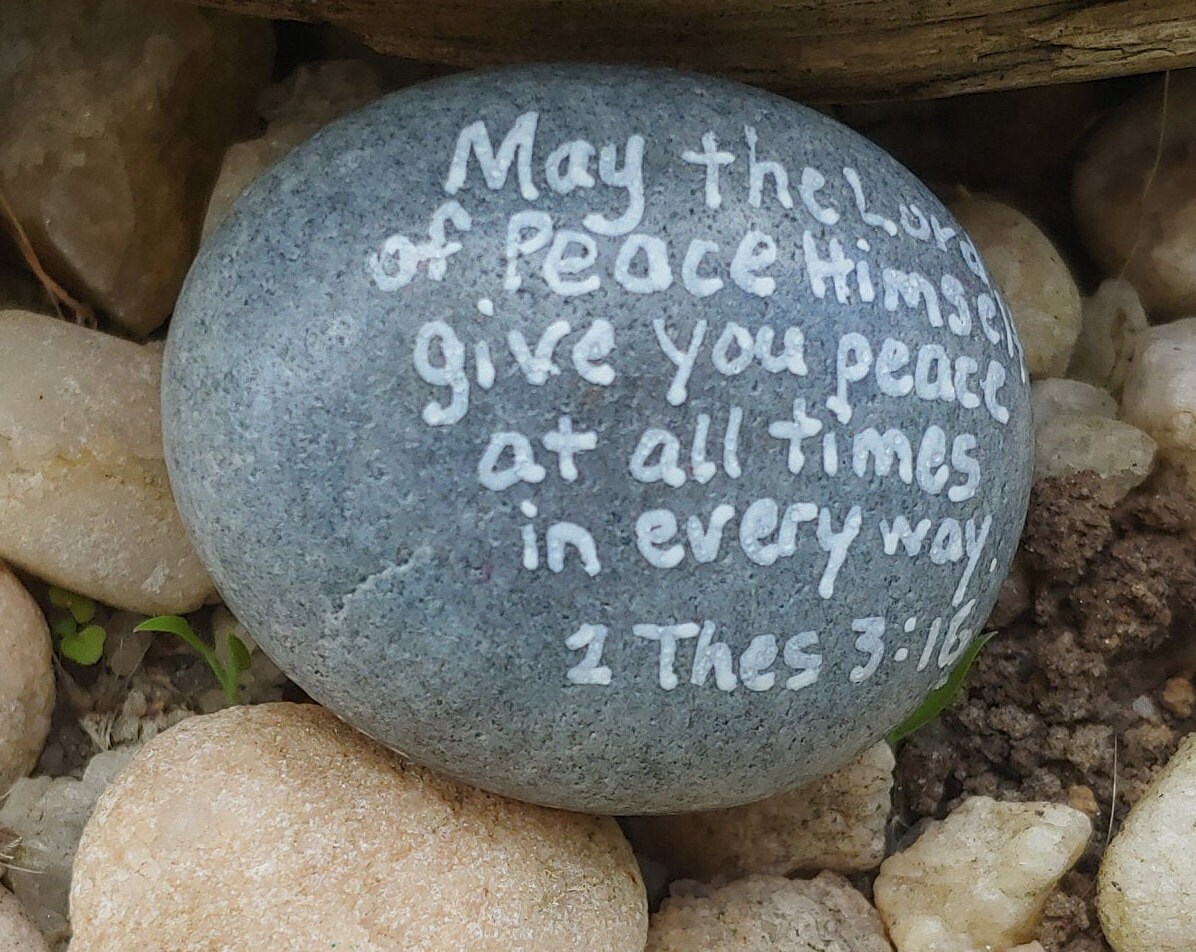 May the Lord
of Peace Himself
give you peace
at all times
in every way.
2 Thes 3:16